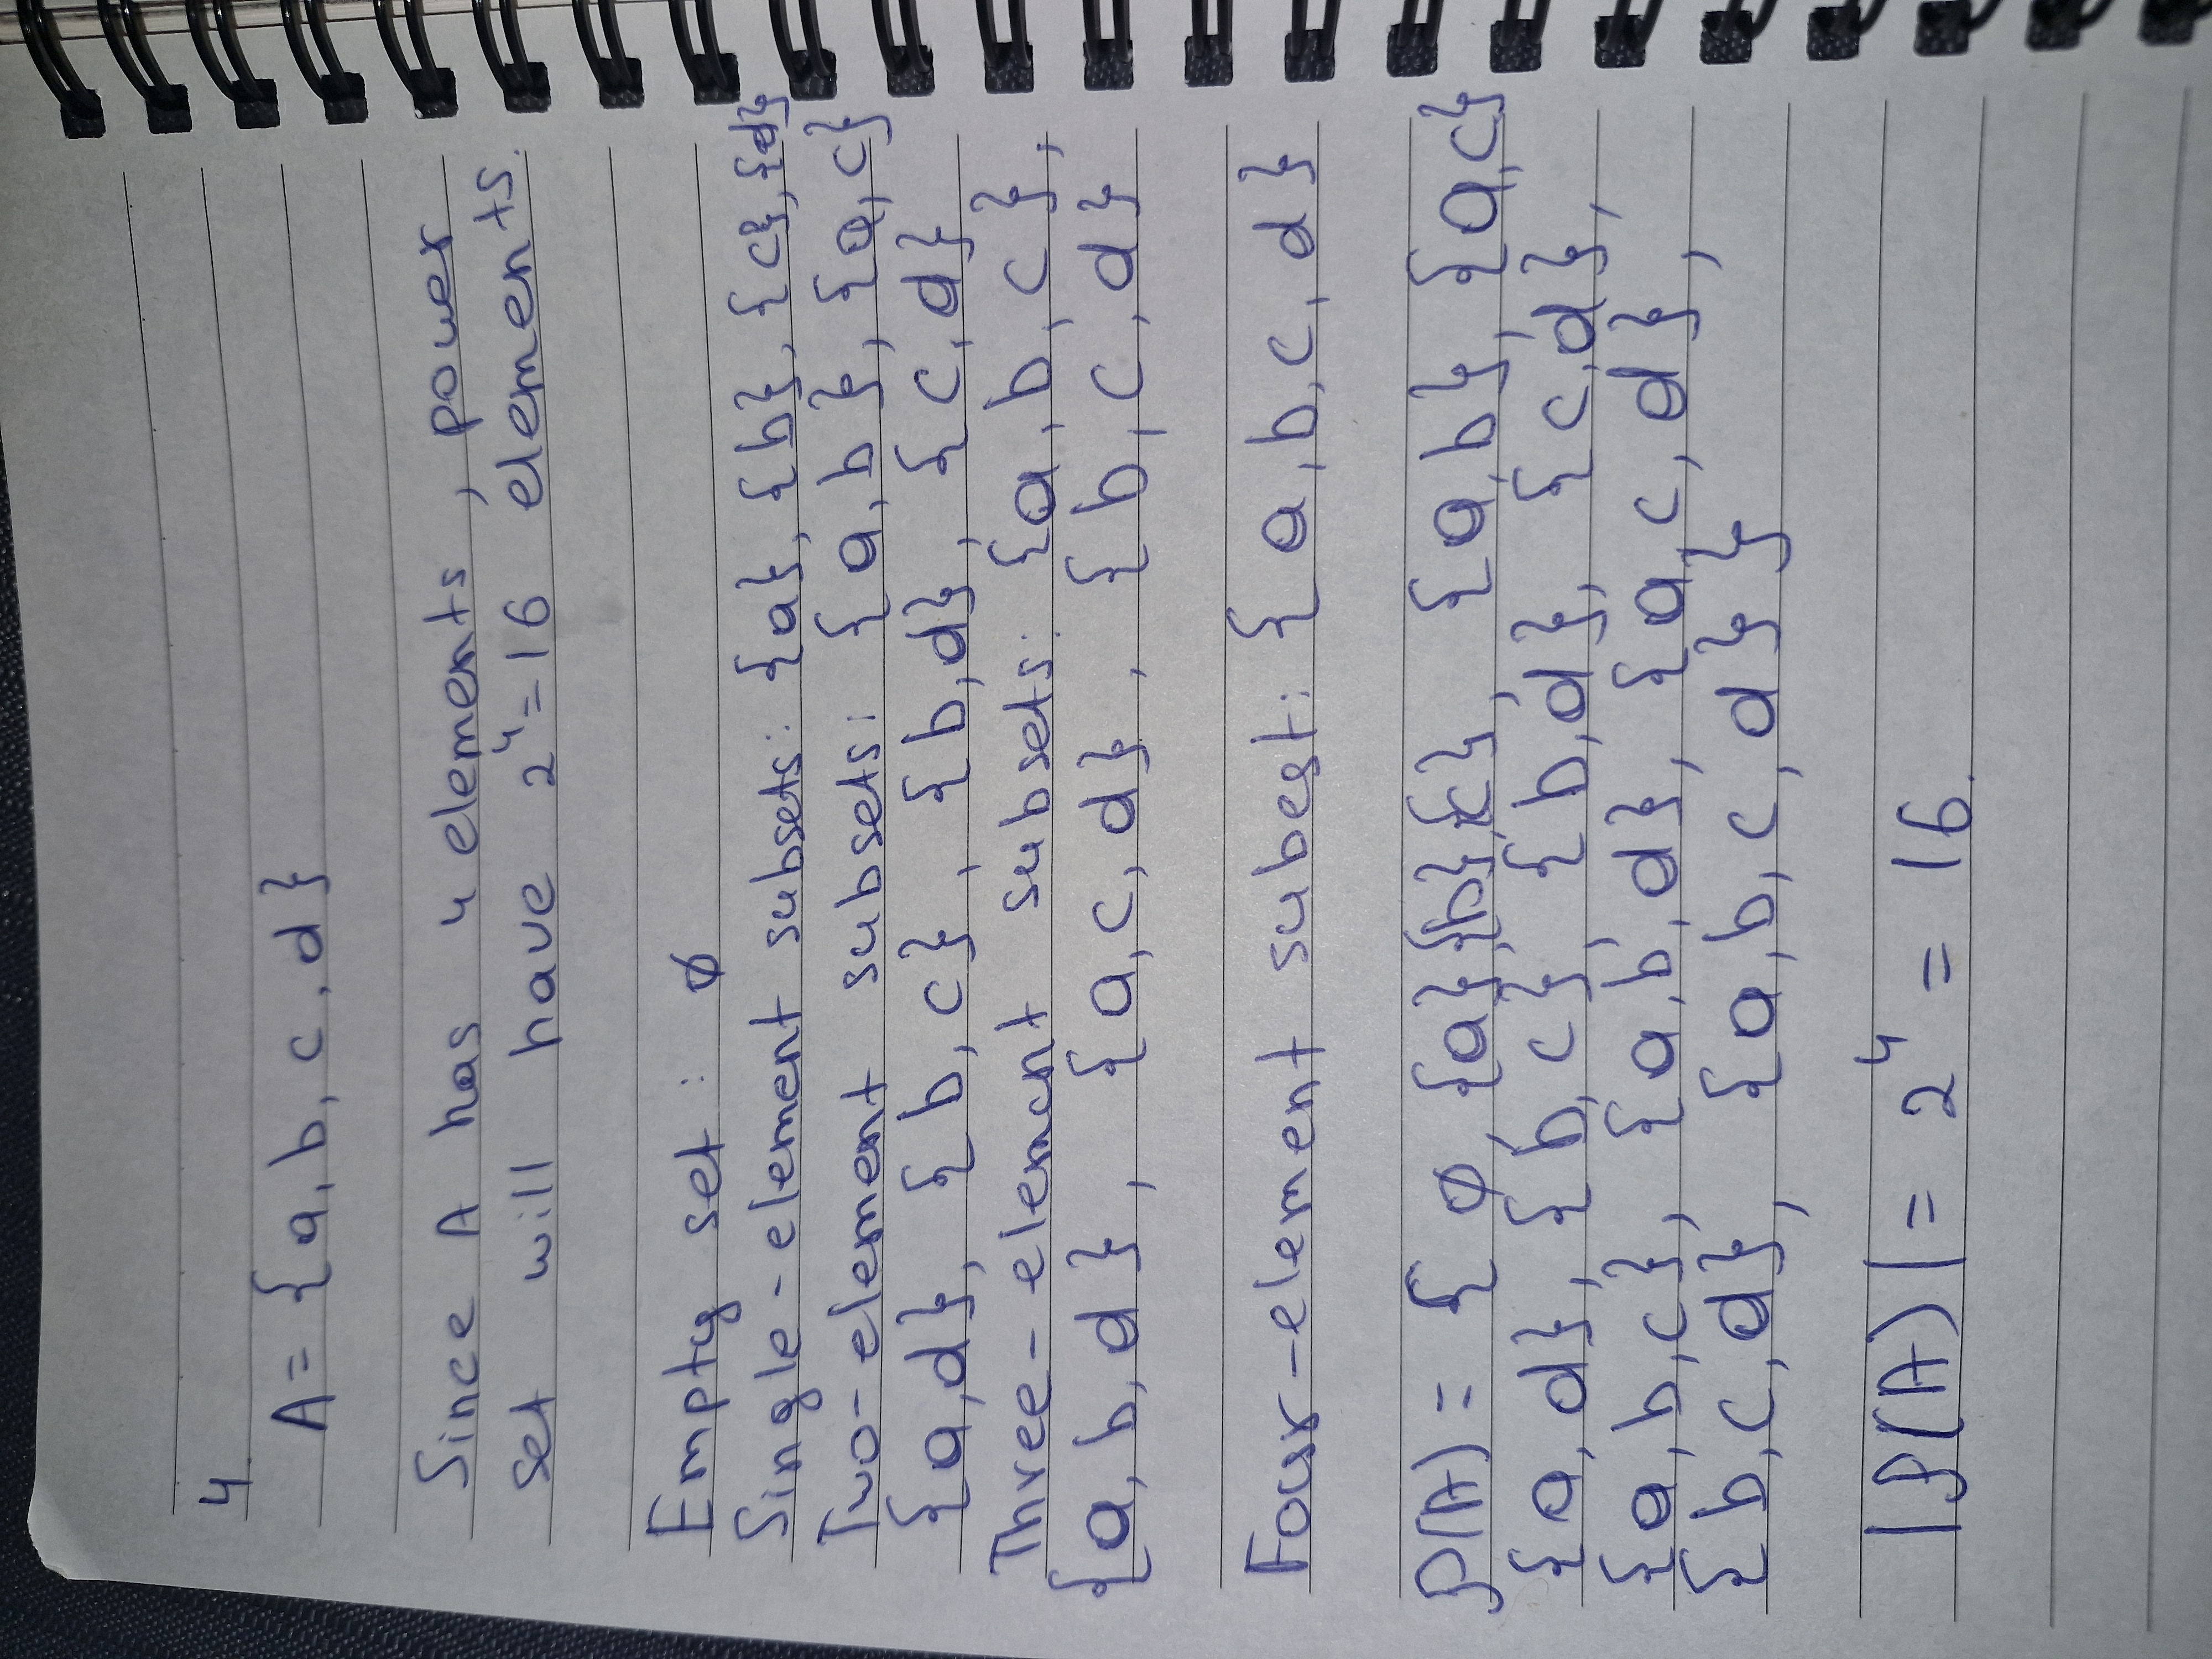 4.
A = {a, b, c, d}
Since A has 4 elements, power
set will have 2⁴ = 16 elements.
Empty set : ø
Single-element subsets: {a}, {b}, {c}, {d}
Two-element subsets: {a, b}, {a, c}
{a,d}, {b, c}, {b,d}, {c, d}
Three-element subsets: {a, b, c},
{a, b, d}, {a, c, d}, {b, c, d}
Four-element subest: {a, b, c, d}
P(A) = { ø, {a},{b},{c}, {a,b}, {a,c}
{a, d}, {b, c}, {b,d}, {c,d},
{a, b, c}, {a, b, d}, {a, c, d},
{b, c, d}, {a, b, c, d} }
|P(A)| = 2⁴ = 16.